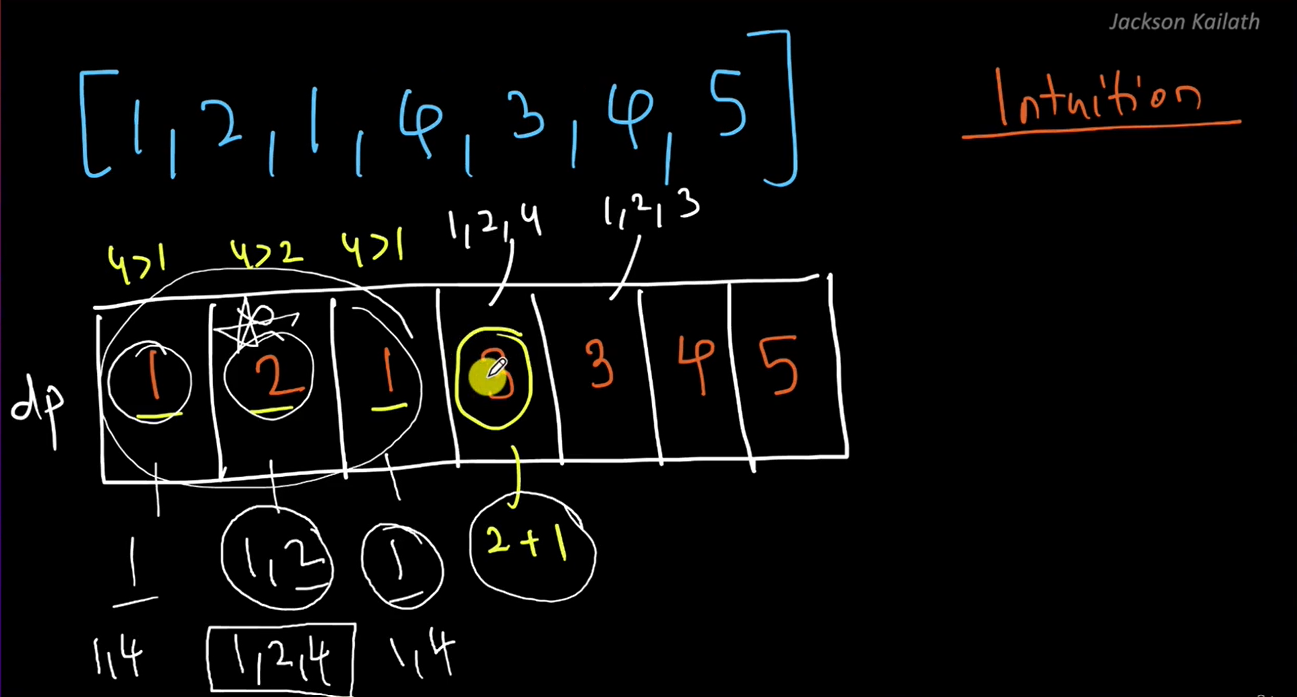 Jackson Kailath
[1, 2, 1, 4, 3, 4, 5]
Intuition
1, 2, 4 1, 2, 3
4>1 4>2 4>1
dp 1 2 1 3 3 4 5
1 1, 2 1 2 + 1
1, 4 1, 2, 4 1, 4